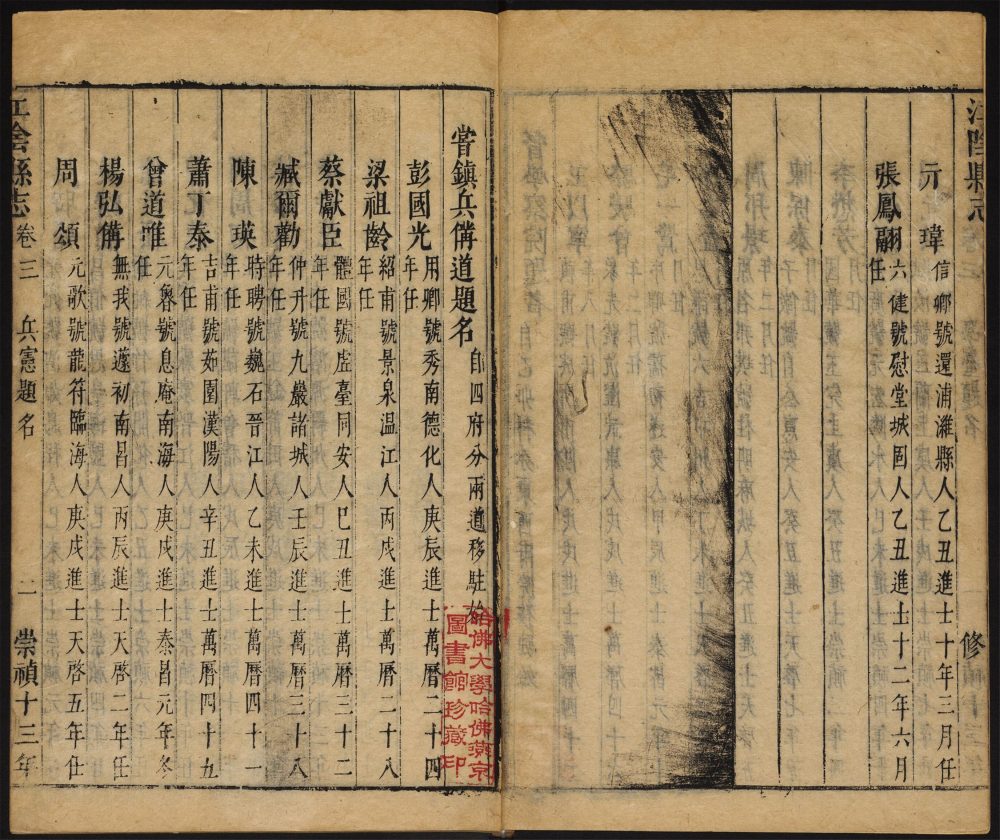 江陰縣志
亓瑋信卿號還浦濰縣人乙丑進士十年三月任
張鳳翮六健號慰堂城固人乙丑進士十二年六月任
修
嘗鎮兵備道題名自四府分兩道移駐於
彭國光用卿號秀南德化人庚辰進士萬曆二十四年任
梁祖齡紹甫號景泉温江人丙戌進士萬曆二十八年任
蔡獻臣體國號虛臺同安人己丑進士萬曆三十二年任
臧爾勸仲升號九巖諸城人壬辰進士萬曆三十八年任
陳瑛時聘號巍石晉江人乙未進士萬曆四十一年任
蕭丁泰吉甫號茹圍漢陽人辛丑進士萬曆四十九年任
曾道唯元魯號息庵南海人庚戌進士泰昌元年冬任
楊弘備無我號邃初南昌人丙辰進士天啓二年任
周頌元歌號龍符臨海人庚戌進士天啓五年任
江陰縣志 卷三 兵憲題名 一 崇禎十三年
哈佛大學哈佛燕京
圖書館珍藏印